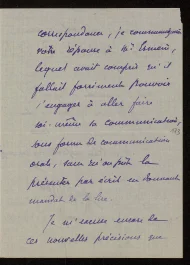 correspondance, je communiquai
votre réponse à Mr
lequel avait compris qu'il
fallait forcément pouvoir
s'engager à aller faire
soi-même sa communication,
sous forme de communication
orale, sans qu'on pût la
présenter par écrit en donnant
mandat de la lire.
Je m'excuse encore de
ces nouvelles précisions que